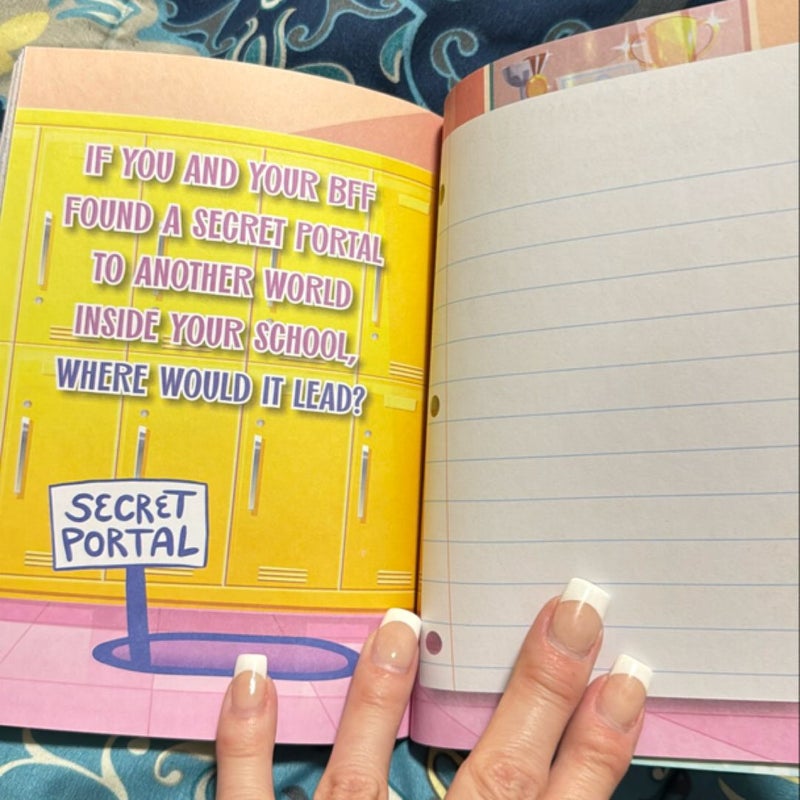 IF YOU AND YOUR BFF
FOUND A SECRET PORTAL
TO ANOTHER WORLD
INSIDE YOUR SCHOOL,
WHERE WOULD IT LEAD?
SECRET
PORTAL